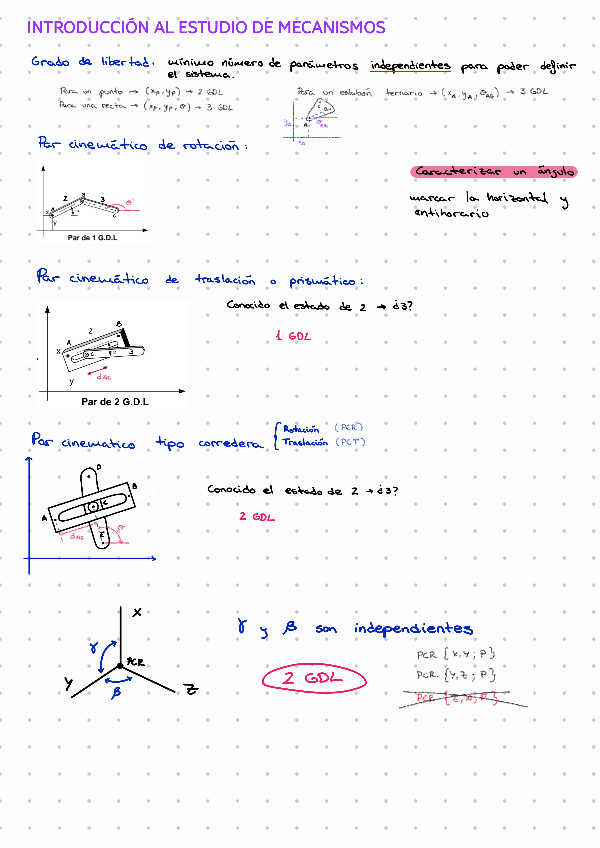 INTRODUCCIÓN AL ESTUDIO DE MECANISMOS
Grado de libertad: mínimo número de parámetros independientes para poder definir
el sistema.
Para un punto → (xp, yp) → 2 GDL
Para una recta → (xp, yp, θ) → 3 GDL
Para un eslabón ternario → (xA, yA, θAB) → 3 GDL
Par cinemático de rotación:
Caracterizar un ángulo
marcar la horizontal y
antihorario
2
3
Par de 1 G.D.L
Par cinemático de traslación o prismático:
Conocido el estado de 2 → ¿3?
1 GDL
X
A
2
B
3
Y
dAC
Par de 2 G.D.L
Par cinematico tipo corredera
Rotación (PCR)
Traslación (PCT)
Conocido el estado de 2 → ¿3?
2 GDL
D
B
C
A
dAC
θ
E
X
γ
PCR
Y
β
Z
γ y β son independientes
2 GDL
PCR {X,Y; P}
PCR {Y,Z; P}
PCR {Z,X; P}